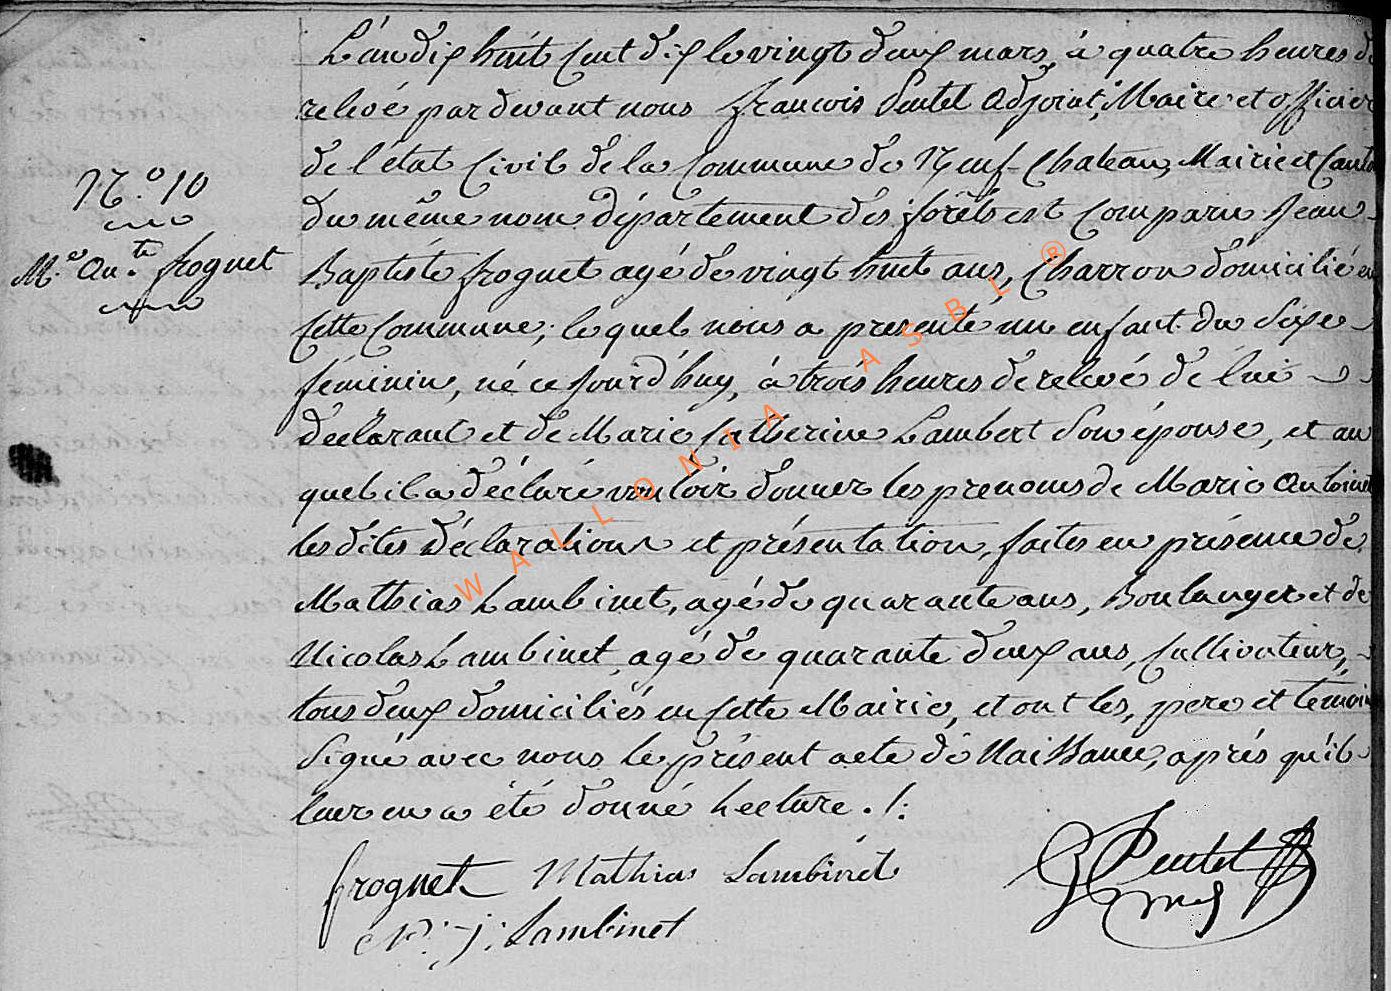 N.° 10
M.e An.te frognet
L'an dix huit cent dix le vingt deux mars, à quatre heures de
relevé par devant nous françois Pentel Adjoint, Maire et officier
de l'état Civil de la Commune de Neuf-Chateau, Mairie et Canton
du même nom département des forêts est Comparu Jean
Baptiste frognet agé de vingt huit ans, Charron domicilié en
Cette Commune; lequel nous a presenté un enfant du Sexe
féminin, né ce jourd'huy, à trois heures de relevé de lui
déclarant et de Marie Catherine Lambert Son épouse, et au
quel il a déclaré vouloir donner les prenoms de Marie Antoinet
les dites déclaration et présentation, faites en présence de
Mathias Lambinet, agé de quarante ans, Boulanger et de
Nicolas Lambinet, agé de quarante deux ans, Cultivateur,
tous deux domiciliés en Cette Mairie, et ont les, pere et temoin
Signé avec nous le présent acte de Naissance, aprés qu'il
leur en a été donné Lecture ./.
frognet Mathias Lambinet
N: j: Lambinet
Pentel
WALLONIA ASBL ®